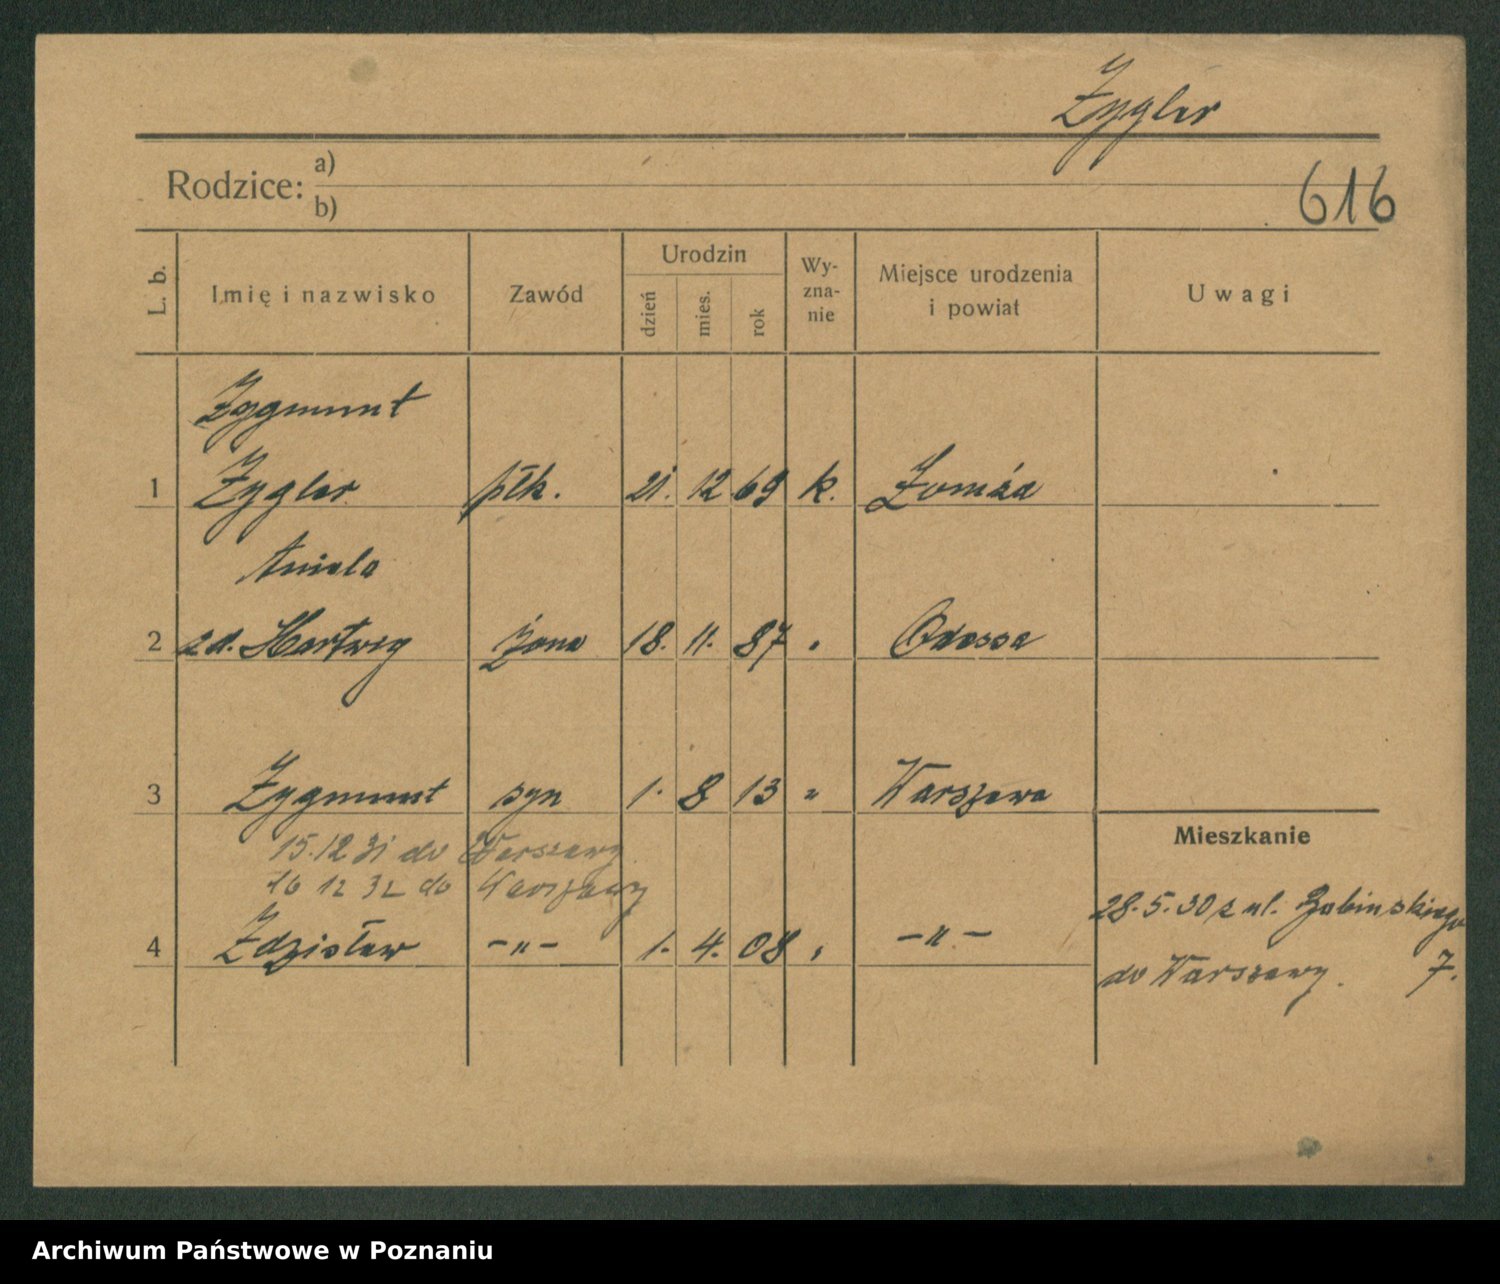 Zygler
Rodzice: a)
b)
616
L. b. Imię i nazwisko Zawód Urodzin dzień mies. rok Wy-zna-nie Miejsce urodzenia i powiat Uwagi
Zygmunt
1 Zygler płk. 21. 12 69 k. Łomża
Aniela
2 zd. Hartwig żona 18. 11. 87 " Odessa
3 Zygmunt syn 1. 8 13 " Warszawa
Mieszkanie
15.12 31 do Warszawy
16 12 32 do Warszawy
28.5.30 z ul. Żabińskiego 7.
4 Zdzisław -"- 1. 4. 08 " -"-
do Warszawy.
Archiwum Państwowe w Poznaniu